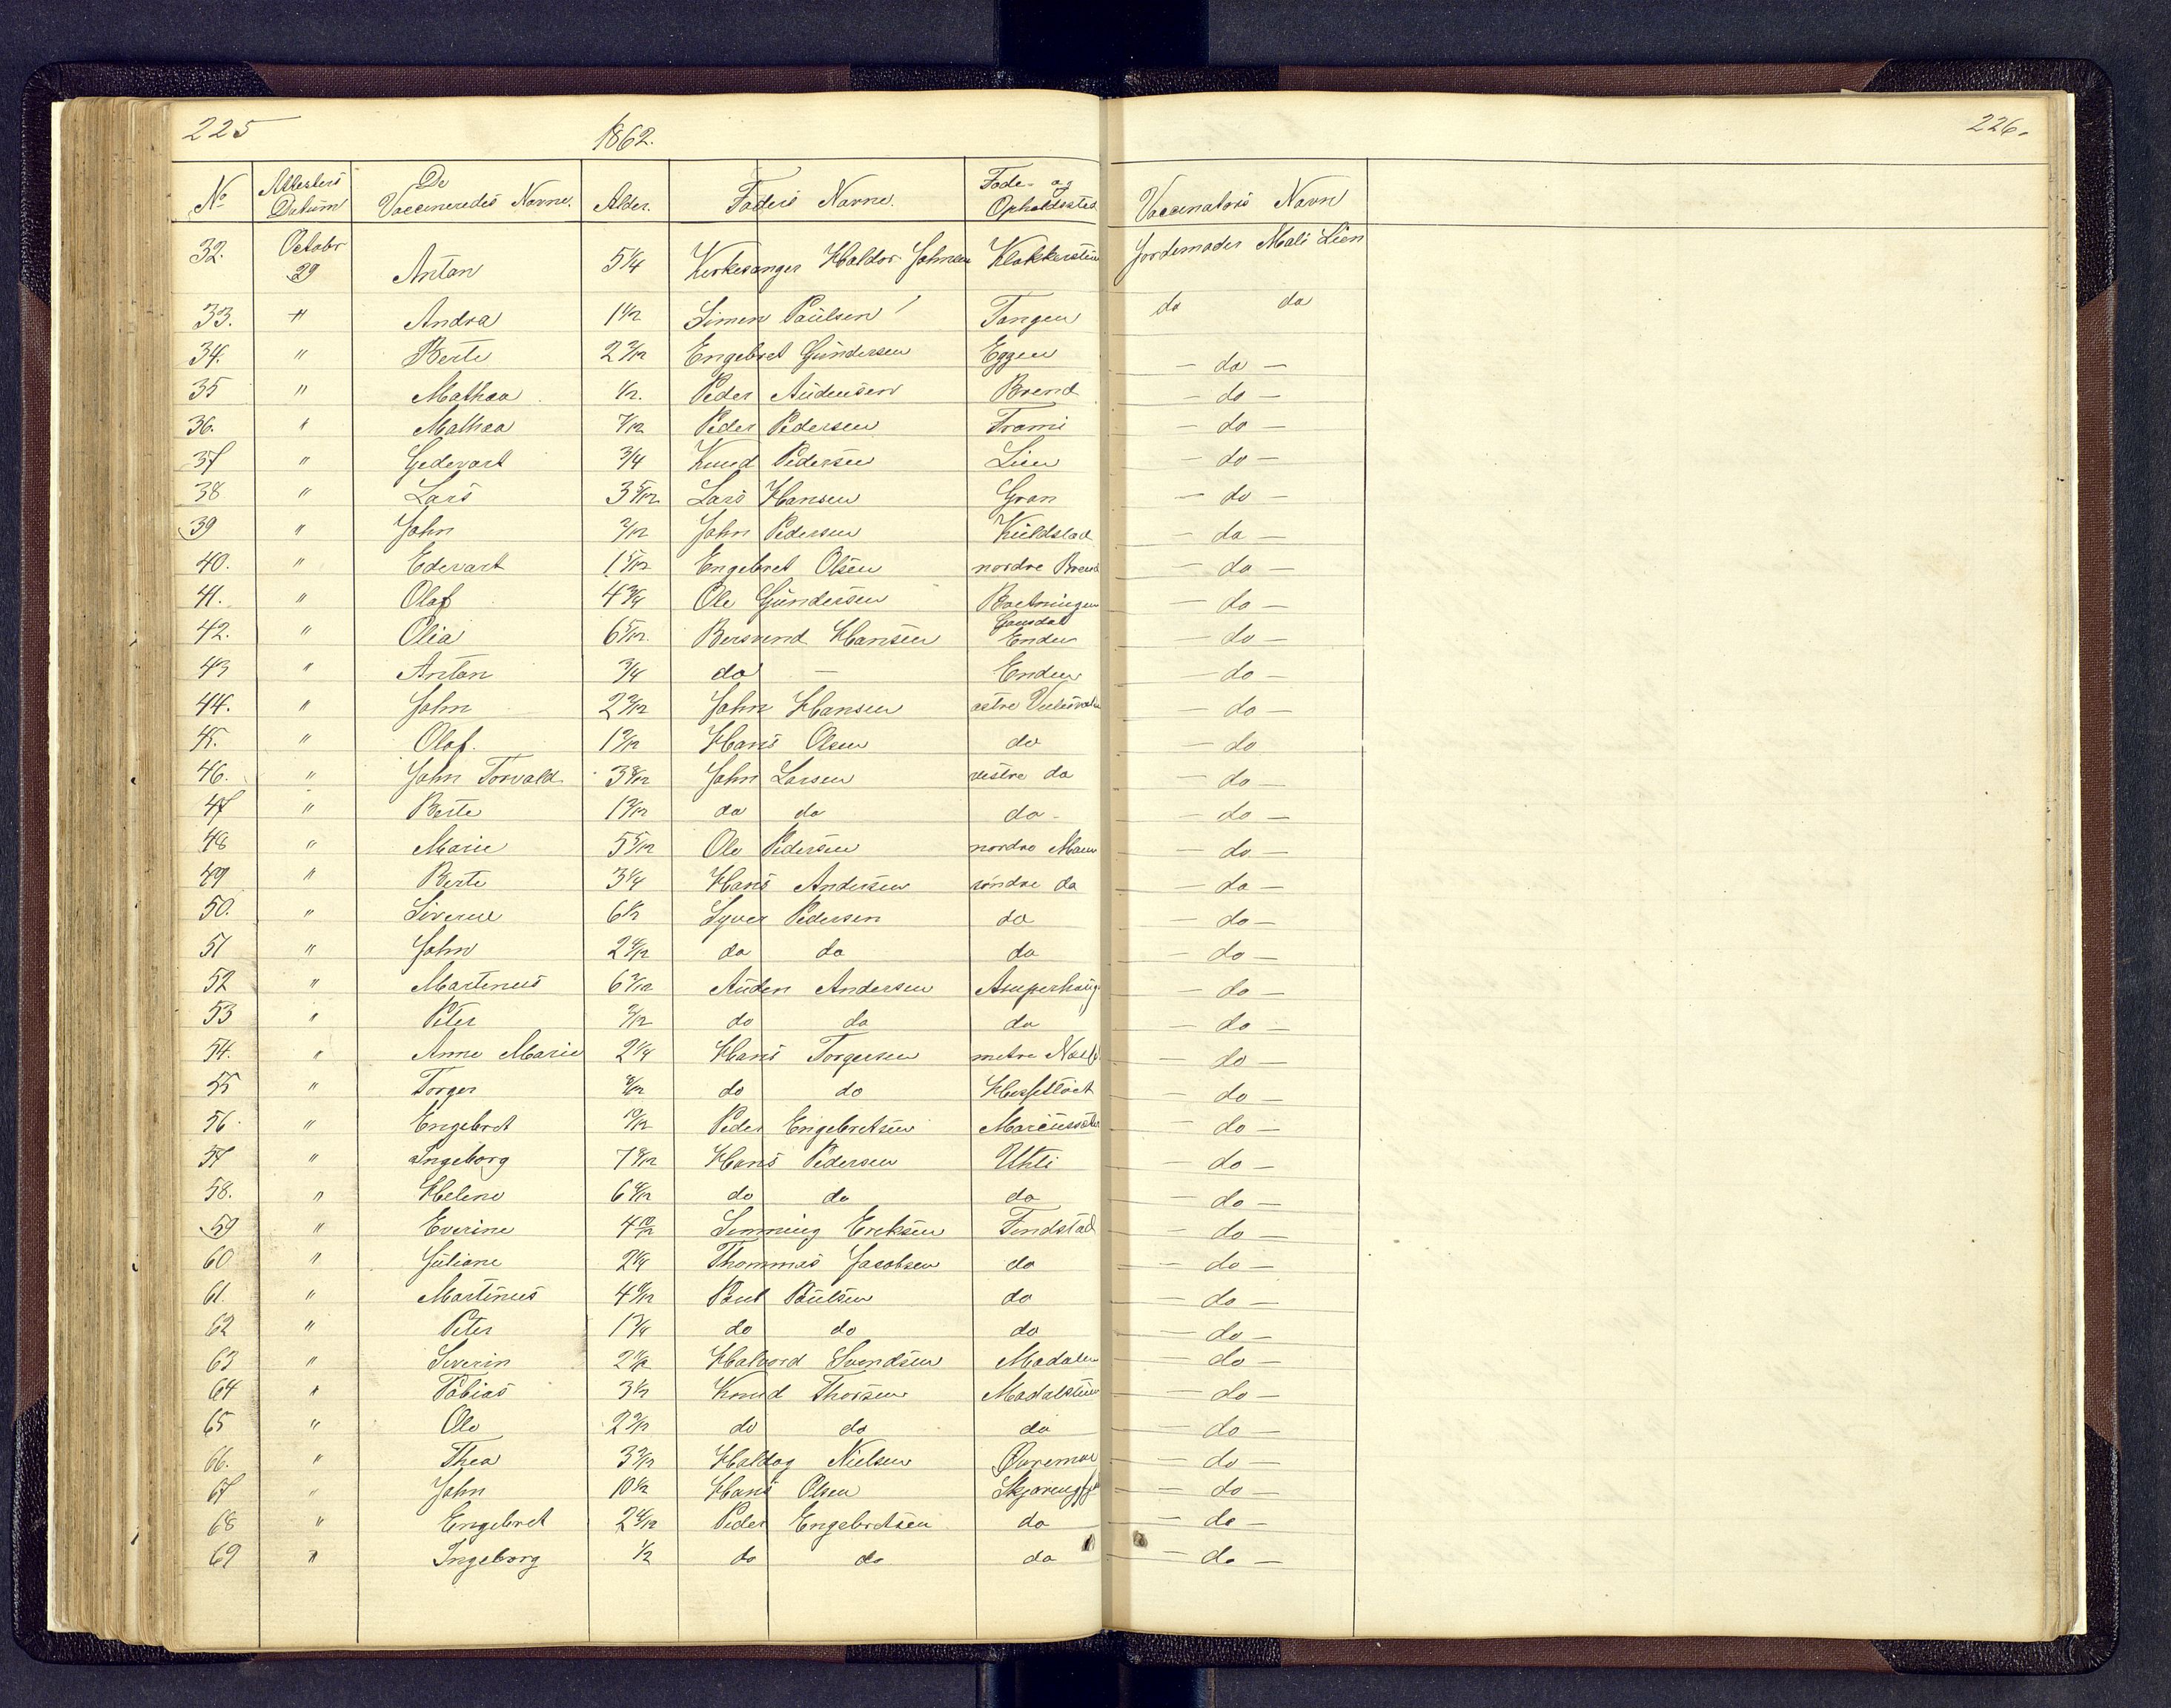 225
1862.
226.
No Attesters Datum De Vaccineredes Navne. Alder. Faders Navne. Føde- og Opholdssted Vaccinatörs Navn
32. Octobr 29 Anton 5 1/4 Kirkesanger Haldor Johnsen Klokkerstuen Jordemoder Mali Lien
33. " Andra 1 1/2 Simen Paulsen Tangen do do
34. " Berte Engebret Gundersen Eggen - do -
35 " Mathea 1/2. Peder Audensen Brend - do -
36. " Mathea 7/12 Peder Pedersen Trami - do -
37 " Gedevart 3/4 Knud Pedersen Lien - do -
38 " Lars 3 5/12 Lars Hansen Gran - do -
39 " John John Pedersen Kuldstad - do -
40. " Edevart 1 5/12 Engebret Olsen nordre Brend - do -
41. " Olaf 4 3/4 Ole Gundersen - do -
42. " Olia 6 5/12. Bersvend Hansen Gausdal Enden - do -
43 " Anton 3/4 do - Enden - do -
44. " John John Hansen - do -
45. " Olaf. Hans Olsen do - do
46. " John Torvald John Larsen vestre do - do -
47 " Berte do do do - - do -
48 " Marie 5 5/12 Ole Pedersen nordre Moen - do -
49 " Berte 3 1/4 Hans Andersen søndre do - do -
50. " Siverine 6 1/2 Syver Pedersen do - do -
51 " John do do do - do -
52 " Martinus 6 7/12 Auden Andersen Amperhaug - do -
53 " Peter do do do - do -
54. " Anne Marie 2 1/4 Hans Torgersen - do -
55 " Torger do do - do -
56. " Engebret 10/12 Peder Engebretsen - do -
57 " Ingeborg Hans Pedersen Uhli - do -
58. " Helene do do do - do -
59 " Everine 4 10/12 Simning Ereksen Findstad - do -
60 " Juliane 2 1/4 Thommas Jacobsen do - do -
61. " Martinus Paul Paulsen do - do -
62 " Peter 1 3/4 do do do - do -
63 " Severin Halvord Svendsen Modalen - do -
64 " Tobias 3 1/2 Knud Thorsen Modalstuen - do -
65 " Ole do do do - do -
66. " Thea Haldog Nielsen Øvremoe - do -
67 " John 10 1/2 Hans Olsen - do -
68 " Engebret Peder Engebretsen do - do -
69 " Ingeborg 1/2 do do do - do -